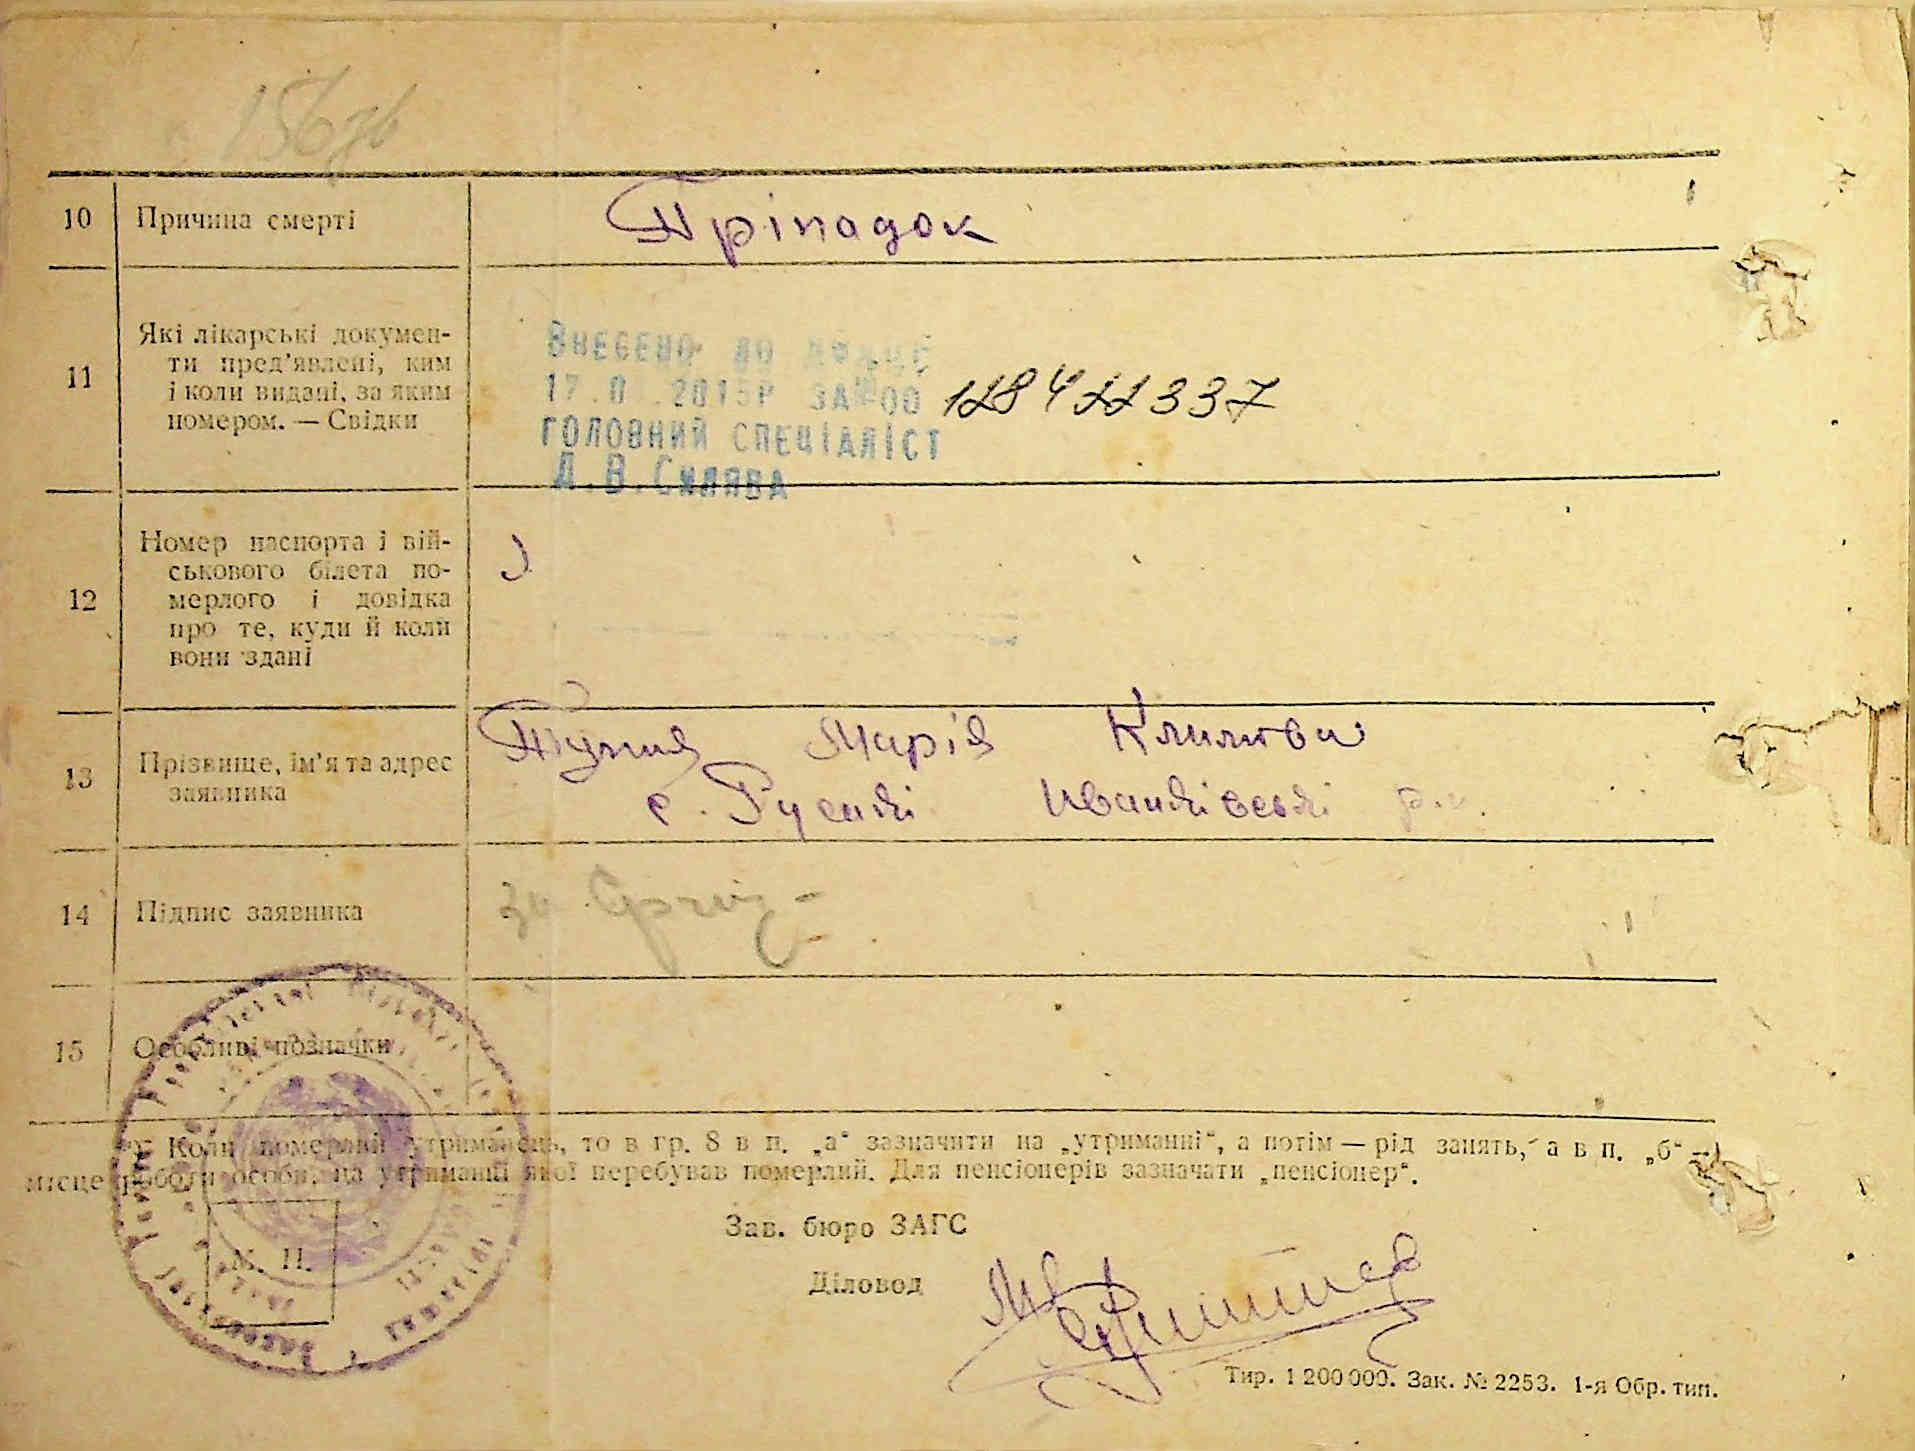 156зв
10 Причина смерті Пріпадок
11 Які лікарські докумен-
ти пред'явлені, ким
і коли видані, за яким
номером. — Свідки
Внесено до ДРАЦС
2015р за №00 118411337
головний спеціаліст
Д.В.Силява
12 Номер паспорта і вій-
ськового білета по-
мерлого і довідка
про те, куди й коли
вони здані
13 Прізвище, ім'я та адрес
заявника
Марія
с. Русакі Іванківські р.н.
14 Підпис заявника за
15 Особливі позначки
*) Коли померлий утриманець, то в гр. 8 в п. „а“ зазначити на „утриманні“, а потім — рід занять, а в п. „б“ —
місце роботи особи, на утриманні якої перебував померлий. Для пенсіонерів зазначати „пенсіонер“.
Зав. бюро ЗАГС
Діловод
М. П.
Тир. 1 200 000. Зак. № 2253. 1-я Обр. тип.